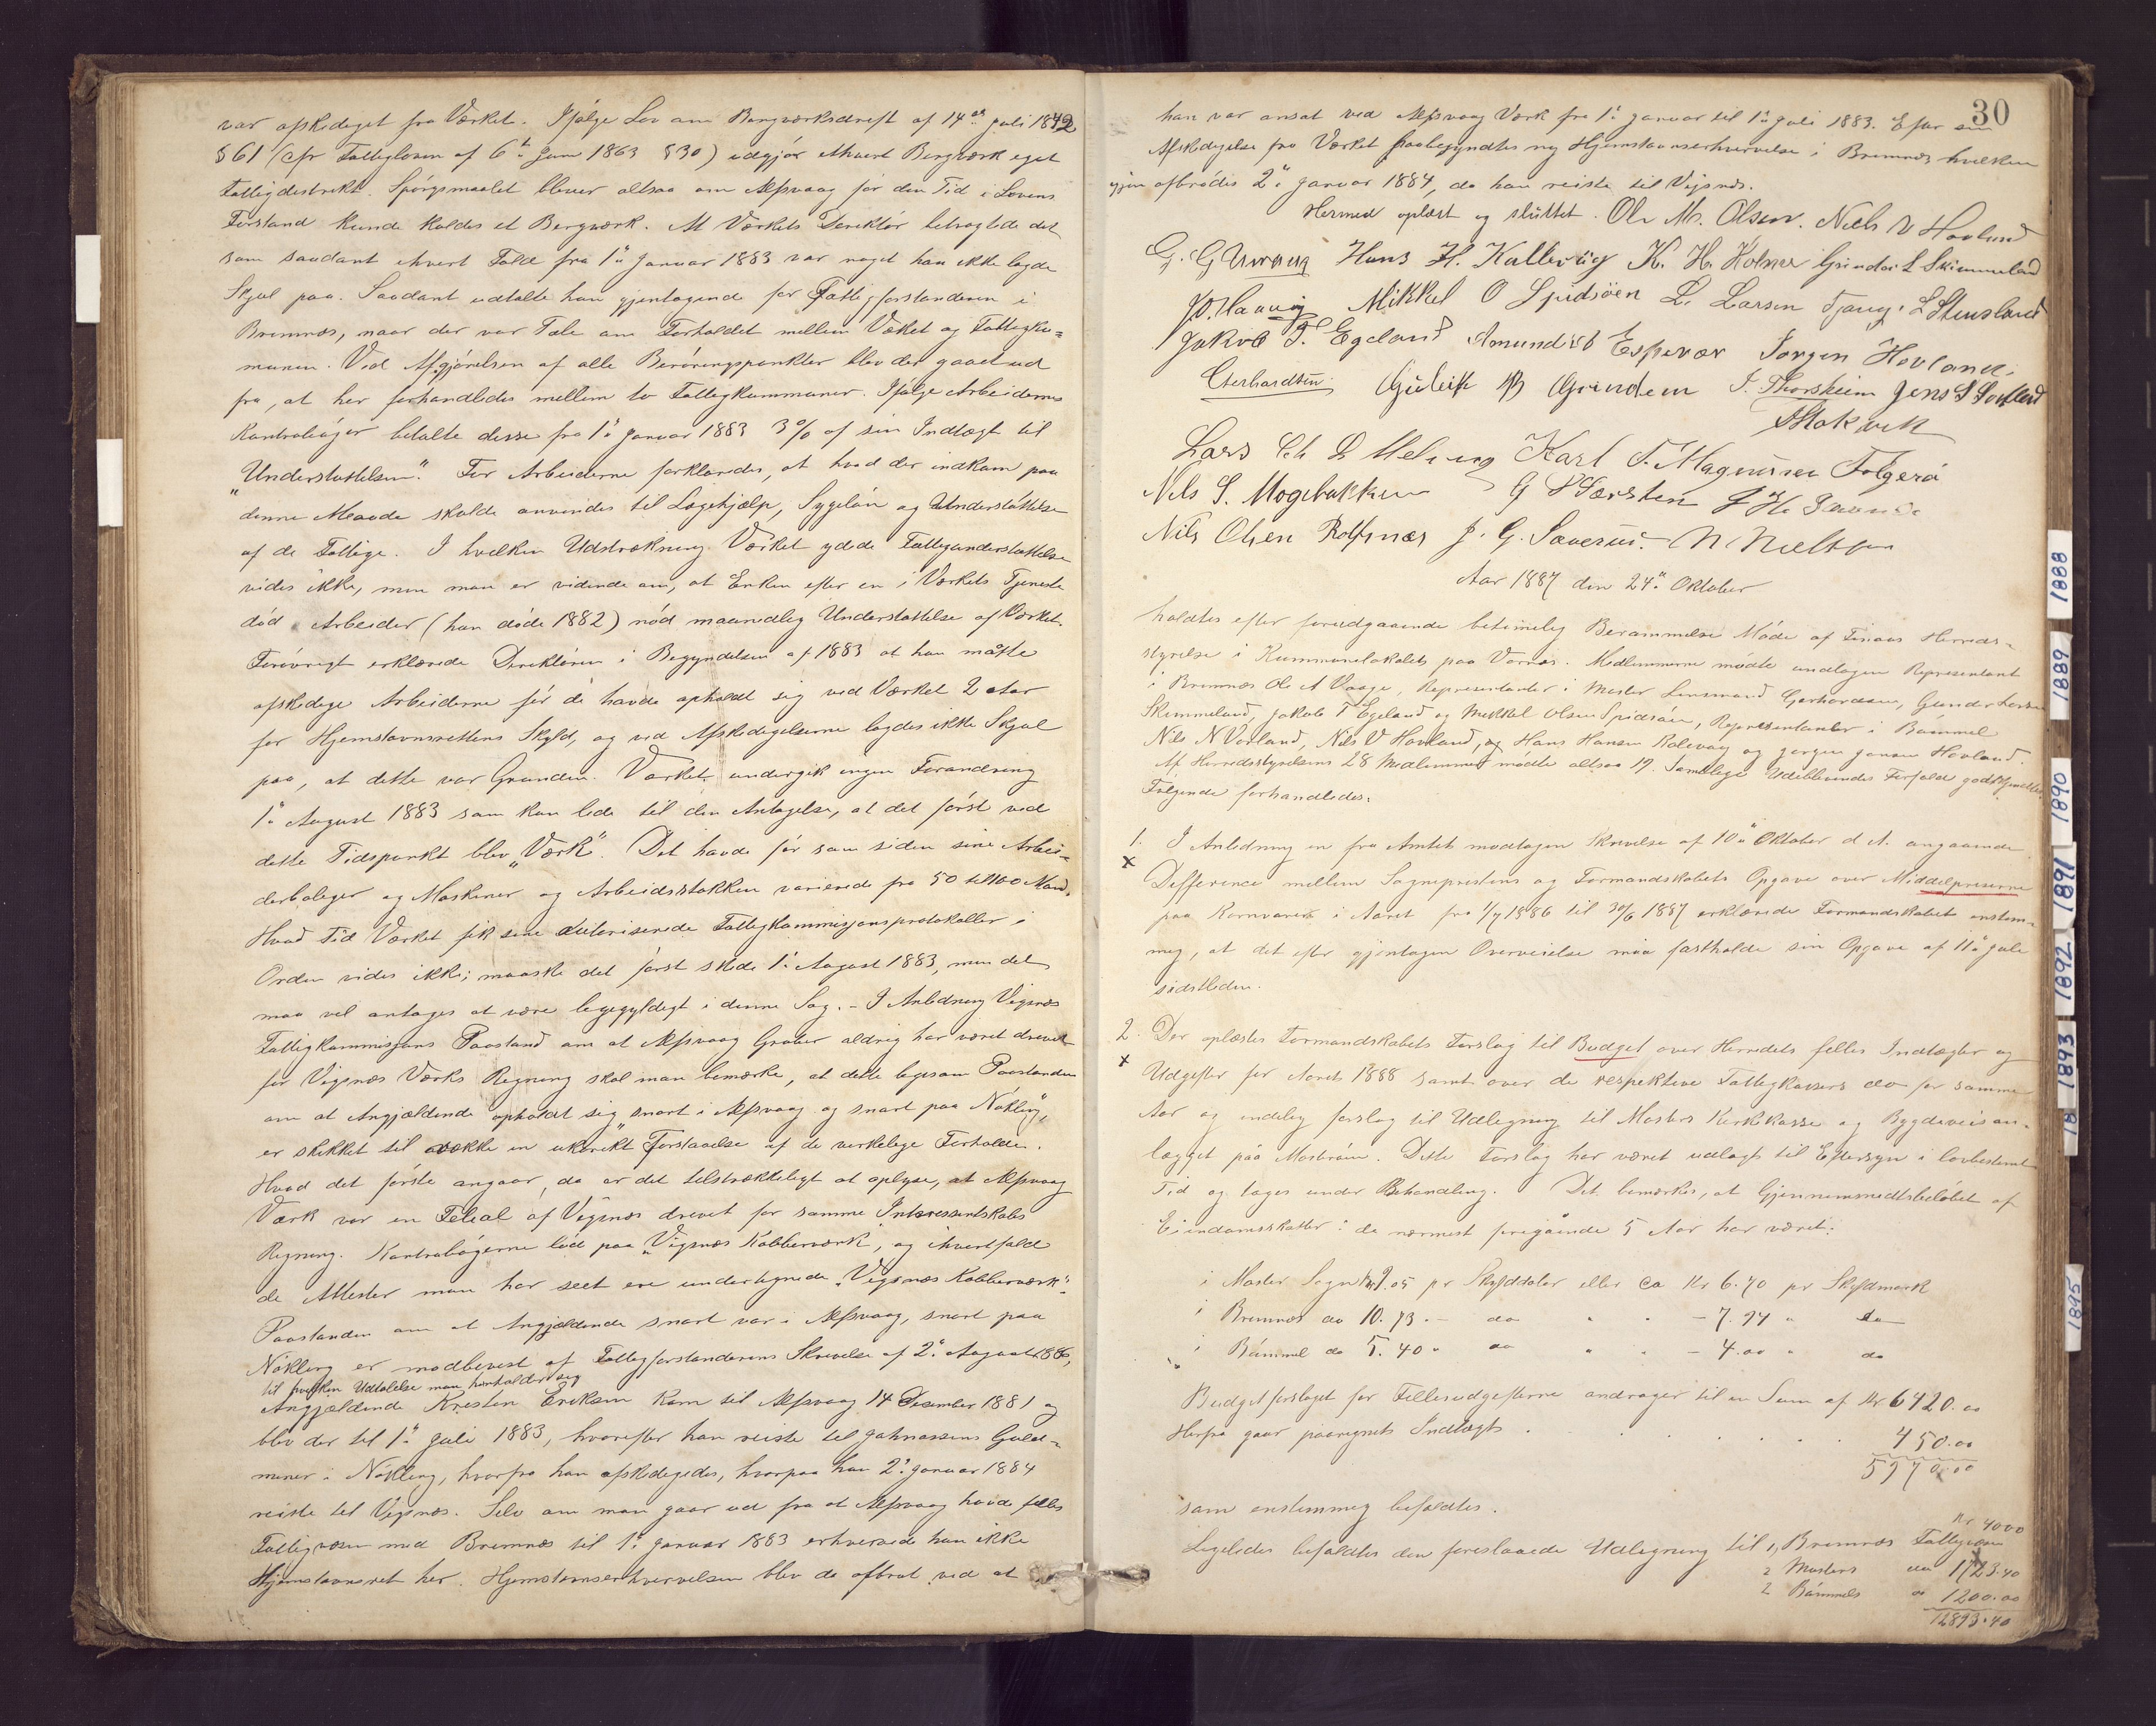 var afskediget fra Værket. Ifølge Lov om Bergværksdrift af 14de Juli 1842
§ 61 (cfr Fattigloven af 6te Juni 1863 § 30) udgjør ethvert Bergværk eget
Fattigdistrikt. Spørgsmaalet bliver altsaa om Alfsvaag før den Tid i Lovens
Forstand kunde kaldes et Bergværk. At Værkets Direktør betragtede det
som saadant ihvert Fald fra 1ste Januar 1883 var noget han ikke lagde
Skjul paa. Saadant udtalte han gjentagende for Fattigforstanderen i
Bremnæs, naar der var Tale om Forholdet mellemVærket og Fattigko=
munen. Ved Afgjørelsen af alle Berøringspunkter blev der gaaet ud
fra, at her forhandledes mellem to Fattigkommuner. Ifølge Arbeidernes
Kontrabøger betalte disse fra 1ste Januar 1883 3% af sin Indtægt til
"Understøttelsen". For Arbeiderne forklaredes, at hvad der indkom paa
denne Maade skulde anvendes til Lægehjælp, Sygeløn og Understøttelse
af de Fattige. I hvilken Udstrækning Værket ydede Fattigunderstøttelse
vides ikke, men man er vidende om, at Enken efter en i Værkets Tjeneste
død Arbeider (han døde 1882) nød maanedlig Understøttelse af Værket.
Forøvrigt erklærede Direktøren i Begyndelsen af 1883 at han måtte
afskedige Arbeiderne før de havde opholdt sig ved Værket 2 Aar
for Hjemstavnsrettens Skyld, og ved Afskedigelserne lagdes ikke Skjul
paa, at dette var Grunden. Værket undergik ingen Forandring
1ste August 1883 som kan lede til den Antagelse, at det først ved
dette Tidspunkt blev "Værk". Det havde før som siden sine Arbei=
derboliger og Maskiner og Arbeidsstokken varierede fra 50 til 100 Mand.
Hvad Tid Værket fik sine autoriserede Fattigkommisjonsprotokoller i
Orden vides ikke; maaske det først skede 1ste August 1883, men det
maa vel antages at være ligegyldigt i denne Sag. - I Anledning Vigsnæs
Fattigkommisjons Paastand om at Alfsvaag Gruber aldrig har været drevet
for Vigsnæs Værks Regning skal man bemærke, at dette ligesom Paastanden
om at Angjældende opholdt sig "snart i Alfsvaag og snart paa Nökling",
er skikket til at vække en ukorekt Forstaaelse af de virkelige Forholde.
Hvad det første angaar, da er det tilstrækkeligt at oplyse, at Alfsvaag
Værk var en Filial af Vigsnæs drevet for samme Interessentskabs
Regning. Kontrabøgerne lød paa "Vigsnæs Kobberværk", og ihvertfald
de Attester man har seet ere undertegnede "Vigsnæs Kobberværk".
Paastanden om at Angjældende snart var i Alfsvaag, snart paa
Nökling er modbevist af Fattigforstanderens Skrivelse af 2den August 1886,
til hvilken Udtalelse man henholder sig
Angjældende Kristen Eriksen kom til Alfsvaag 14 Desember 1881 og
blev der til 1ste Juli 1883, hvorefter han reiste til Johnassens Guld=
miner i Nökling, hvorfra han afskedigedes, hvorpaa han 2den Januar 1884
reiste til Vigsnæs. Selv om man gaar ud fra at Alfsvaag havde fælles
Fattigvæsen med Bremnæs til 1ste Januar 1883 erhvervede han ikke
Hjemstavnsret her. Hjemstavnserhvervelsen blev da afbrut ved at
30
han var ansat ved Alfsvaag Værk fra 1ste Januar til 1ste Juli 1883. Efter sin
Afskedigelse fra Værket paabegyndtes ny Hjemstavnserhvervelse i Bremnæs hvilken
igjen afbrødes 2den Januar 1884, da han reiste til Vigsnæs.
Hermed oplæst og sluttet. Ole M. Olsen. Niels V Hovland
Hans H. Kallevig K. H. Holme Gunder L Skimmeland
Mikkel O Spidsöen L. Larsen Tjong. L Stensland
Jakob T. Egeland Amund Espevær Jørgen Hovland.
Gerhardsen. Guleik Grindem I. Thorsheim Jens S Sortland
Stokvik
Lars Meling Karl F. Magnusen Folgerö
Nils S. Mogebakken
Nils Olsen Rolfsnæs J. G. Saverud. N. Nielsen
Aar 1887 den 24de Oktober
holdtes efter forudgaaende betimelig Berammelse Möde af Finaas Herreds-
styrelse i Kommunelokalet paa Vornæs. Medlemmerne mødte undtagen Repræsentant
i Bremnæs Ole A Vaage, Repræsentanter i Moster Lensmand Gerhardsen, Gunder Larsen
Skimmeland, Jakob T Egeland og Mikkel Olsen Spidsöen, Repræsentanter i Bömmel
Nils N Vorland, Nils V Hovland, og Hans Hansen Kalevaag og Jørgen Jansen Hovland.
Af Herredsstyrelsens 28 Medlemmer mødte altsaa 19. Samtlige Udeblivendes Forfald godkjendtes.
Følgende forhandledes:
1. I Anledning en fra Amtet modtagen Skrivelse af 10de Oktober d. A. angaaende
x Defference mellem Sogneprestens og Formandskabets Opgave over Middelpriserne
paa Kornvarer i Aaret fra 1/7 1886 til 30/6 1887 erklærede Formandskabet enstem-
mig, at det efter gjentagen Overveielse maa fastholde sin Opgave af 11te Juli
sidstleden.
2. Der oplæstes Formandskabets Forslag til Budget over Herredets fælles Indtægter og
x Udgifter for Aaret 1888 samt over de respektive Fattigkassers do for samme
Aar og endelig forslag til Udligning til Mosters Kirkekasse og Bygdeveisan-
lægget på Mosterøen. Dette Forslag har været udlagt til Eftersyn i lovbestemt
Tid og toges under Behandling. Det bemærkes, at Gjennemsnitsbeløbet af
Eiendomsskatter i de nærmest foregående 5 Aar har været:
i Moster Sogn Kr 9.05 pr Skylddaler eller ca Kr 6.70 pr Skyldmark
i Bremnæs do 10.73 - do " " - 7.94 " do
i Bömmel do 5.40 " do " " - 4.00 " do
Budgetforslaget for Fællesudgifterne andrager til en Sum af Kr 6420.00
Herfra gaar paaregnet Indtægt . . . . . . . 450.00
5970.00
som enstemmig besluttes.
Kr 4000
Ligeledes besluttes den foreslaaede Udligning til 1, Bremnæs Fattigvæsen
2 Mosters do 1723.40
2 Bömmels do 1200.00
12893.40
1888
1889
1890
1891
1892
1893
18
1895